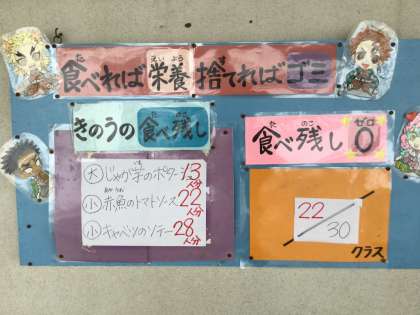 食べれば栄養捨てればゴミ
きのうの食べ残し
大 じゃが芋のポタージュ 13人分
小 赤魚のトマトソース 22人分
小 キャベツのソテー 28人分
食べ残し0
22/30
クラス